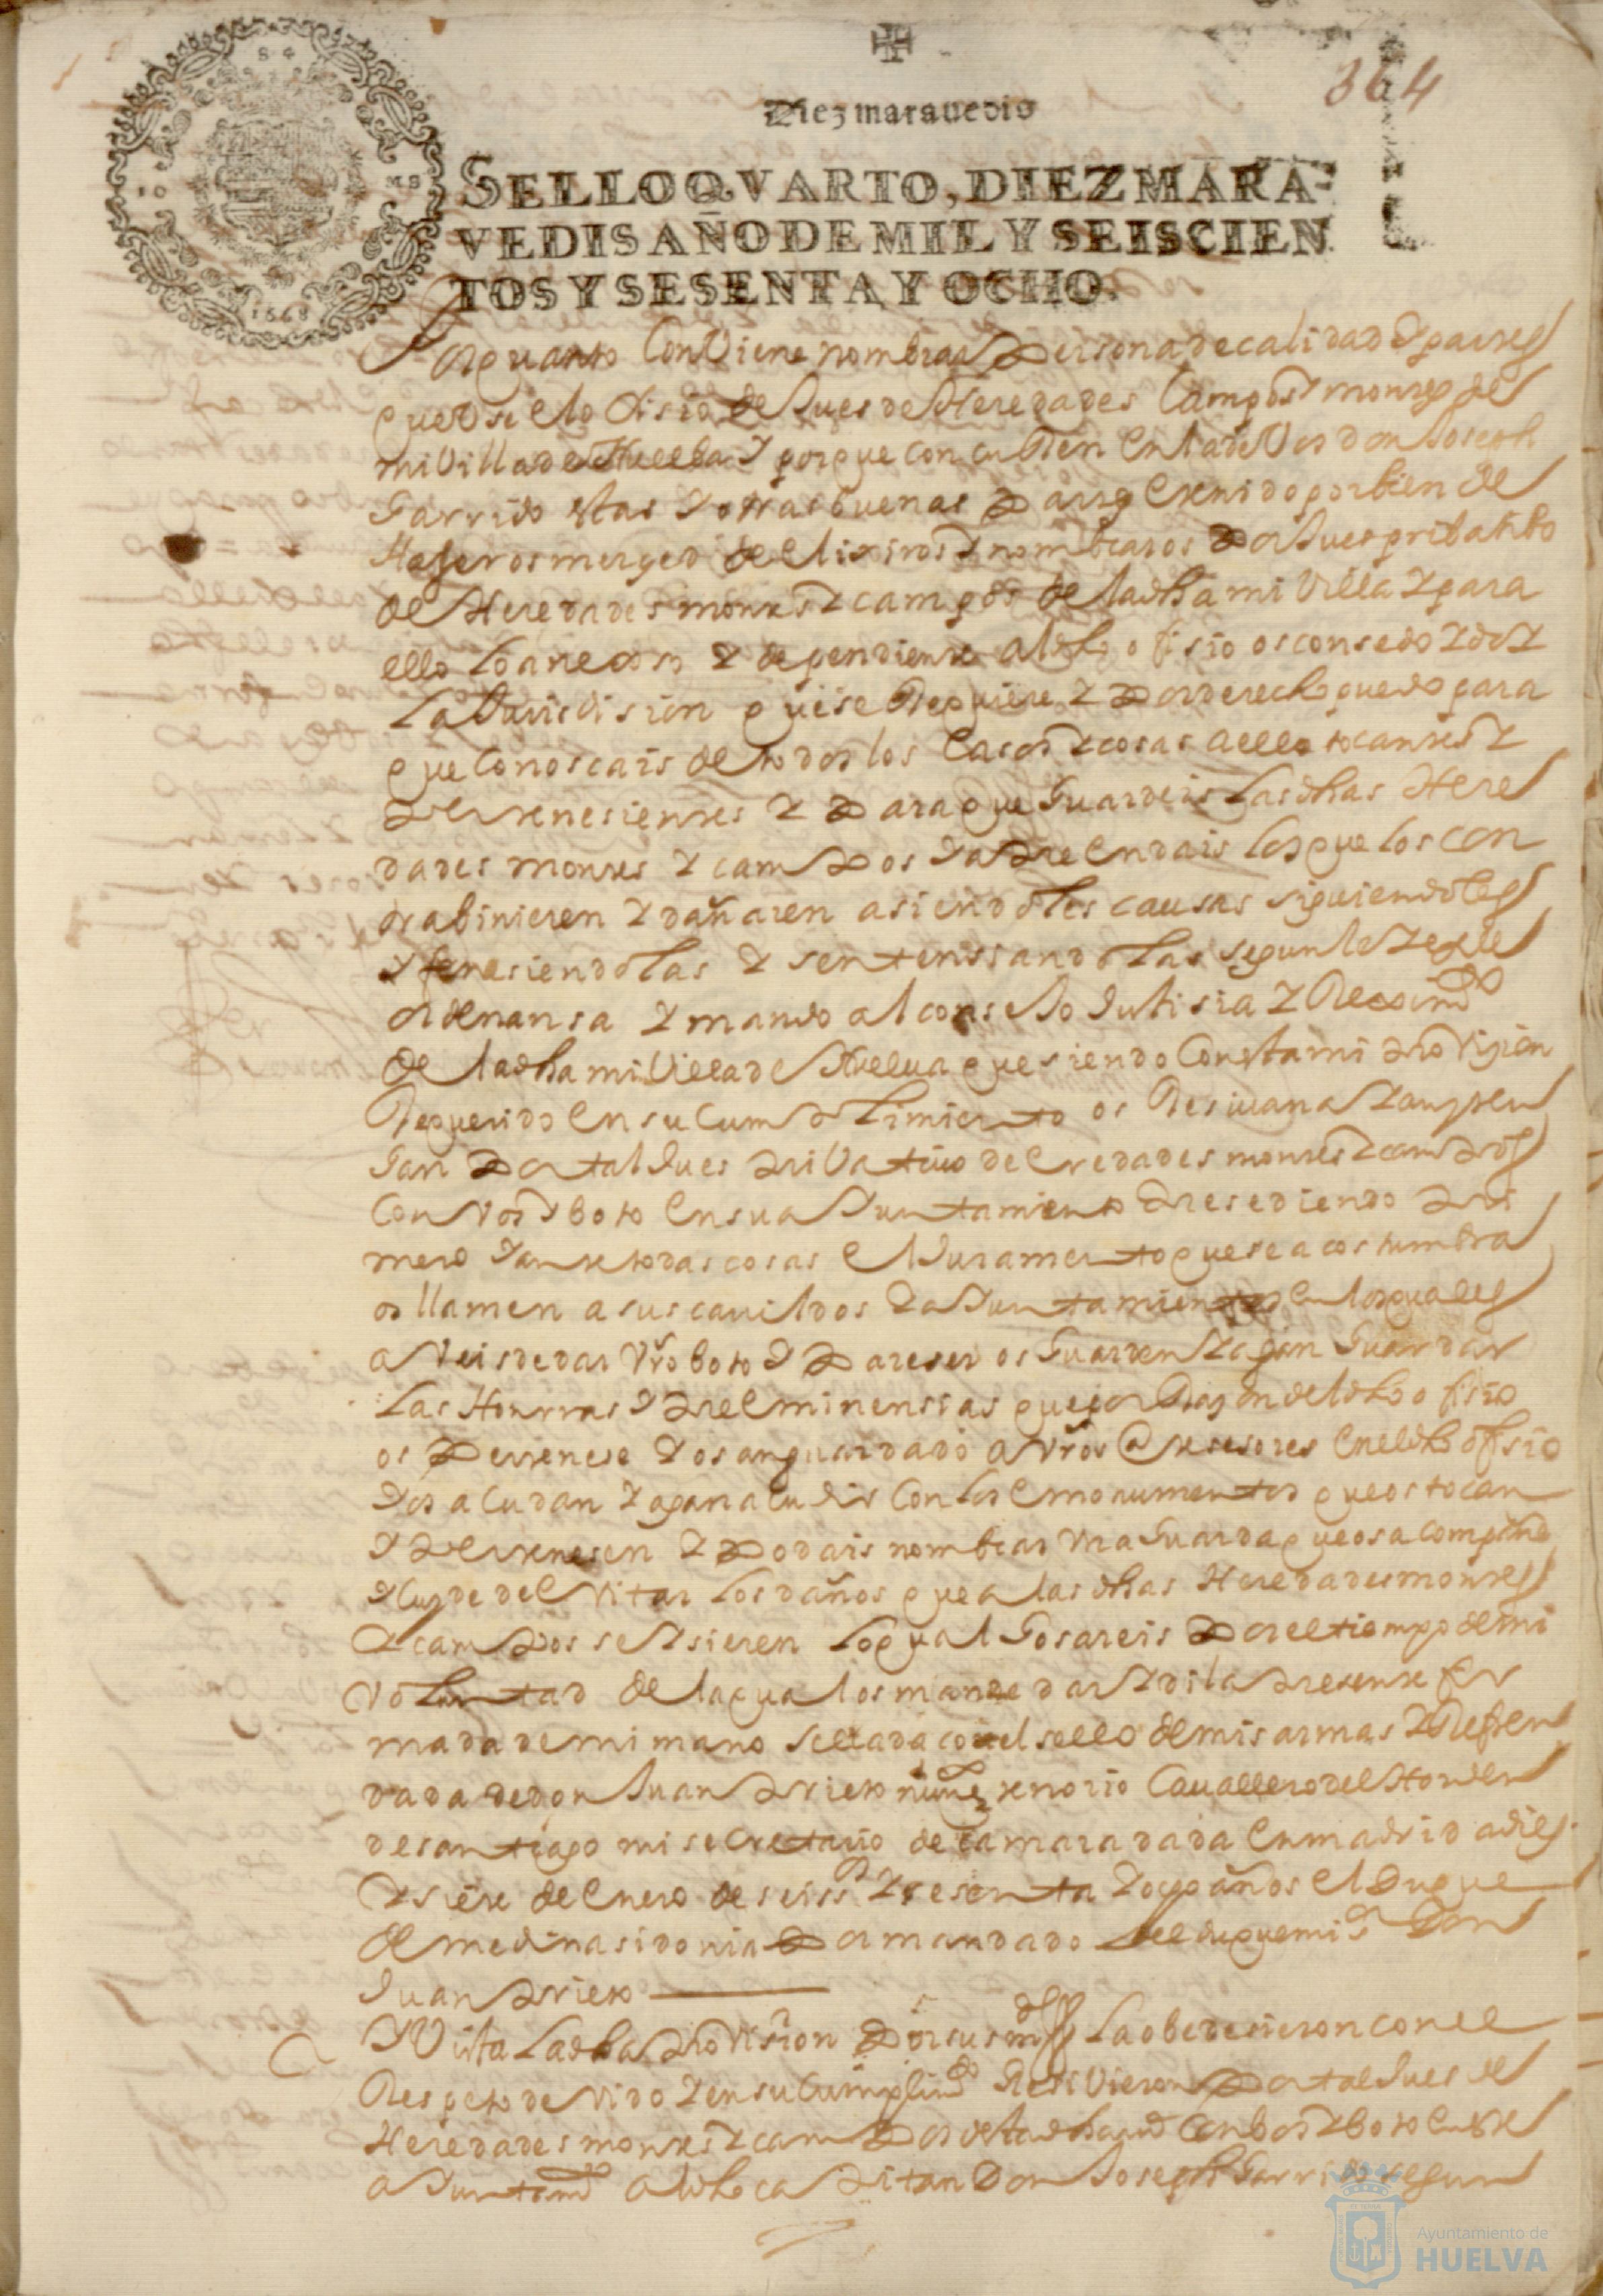 364
Diez marauedis
SELLO QVARTO, DIEZ MARA-
VEDIS AÑO DE MIL Y SEISCIEN
TOS Y SESENTA, Y OCHO.
1668
Por quanto Conviene nombrar Persona de calidad y partes
que use el ofisio de Jues de Heredades Campos y montes de
mi Villa de Huelba y porque concurren en la de Vos don Joseph
Garrido estas y otras buenas partes e tenido por bien de
Haseros merçed de elixiros y nombraros por Jues pribatibo
de Heredades montes y campos de la dha mi Villa y para
ello lo anecso y dependiente al dho ofisio os consedo y doy
La Jurisdision que se Requiere y por derecho puedo para
que Conoscais de todos los Casos y cosas a ello tocantes y
Pertenesientes y Para que Guardeis las dhas Here
dades montes y campos y a Prendais los que los con
trabinieren y dañaren asiendoles causas siguiendoles
y fenesiendolas y sentensiandolas segun ley e
ordenansa y mando al consejo Justisia y Reximdo
de la dha mi Villa de Huelua que siendo Con esta mi Provision
Requerido En su Cumplimiento os Resivan y tengan
por tal Jues Privativo de Eredades montes y campos
Con Vos y boto En su aJuntamiento Presediendo Pri
mero y ante todas cosas el Juramento que se acostumbra
os llamen a sus cauildos y aJuntamientos En los quales
aveis de dar Vro boto y Pareser os Guarden y agan Guardar
Las Honrras y Preeminensias que por Raçon del dho ofisio
os Pertenese y os an guardado a vros Antesesores En el dho ofisio
y os acudan y agan acudir Con los Emonumentos que os tocan
y Pertenesen y Podais nombrar vna Guarda que os acompañe
y cuyde de Evitar los daños que a las dhas Heredades montes
y campos se ysieren lo qual Gosareis Por el tiempo de mi
voluntad de la qual os mande dar y di la Presente fir
mada de mi mano Sellada con el sello de mis armas y Refren
dada de don Juan Prieto nuñez tenorio Cauallero del Horden
de santiago mi secretario de camara dada En madrid a dies
y siete de Enero de seiss y sesenta y ocho años El Duque
de medina sidonia Por mandado del duque mi sr Don
Juan Prieto
y Vista La dha Provision Por sus mds La obedesieron con el
Respeto devido y en su Cumplimdo Resivieron Por tal Jues de
Heredades montes y campos de la dha con bos y boto En este
aJuntamdo al dho capitan Don Joseph Garrido segun
Ayuntamiento de
HUELVA